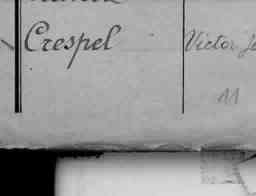 Crespel Victor Je
11